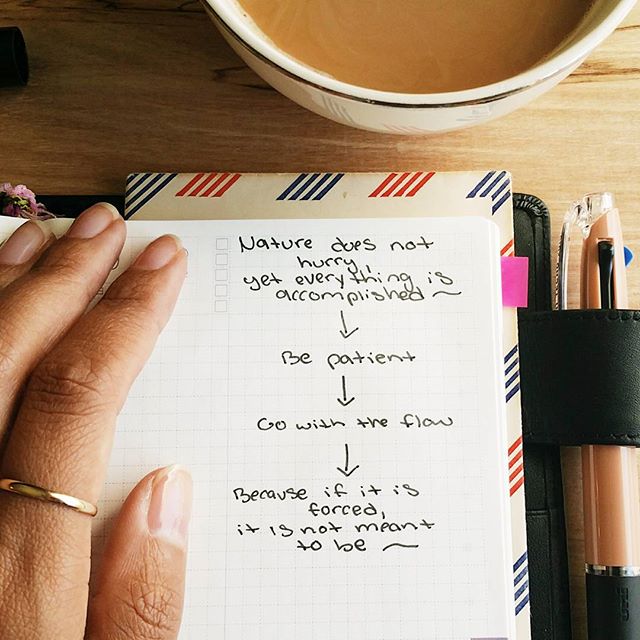 Nature does not
hurry,
yet everything is
accomplished ~
↓
Be patient
↓
Go with the flow
↓
Because if it is
forced,
it is not meant
to be ~